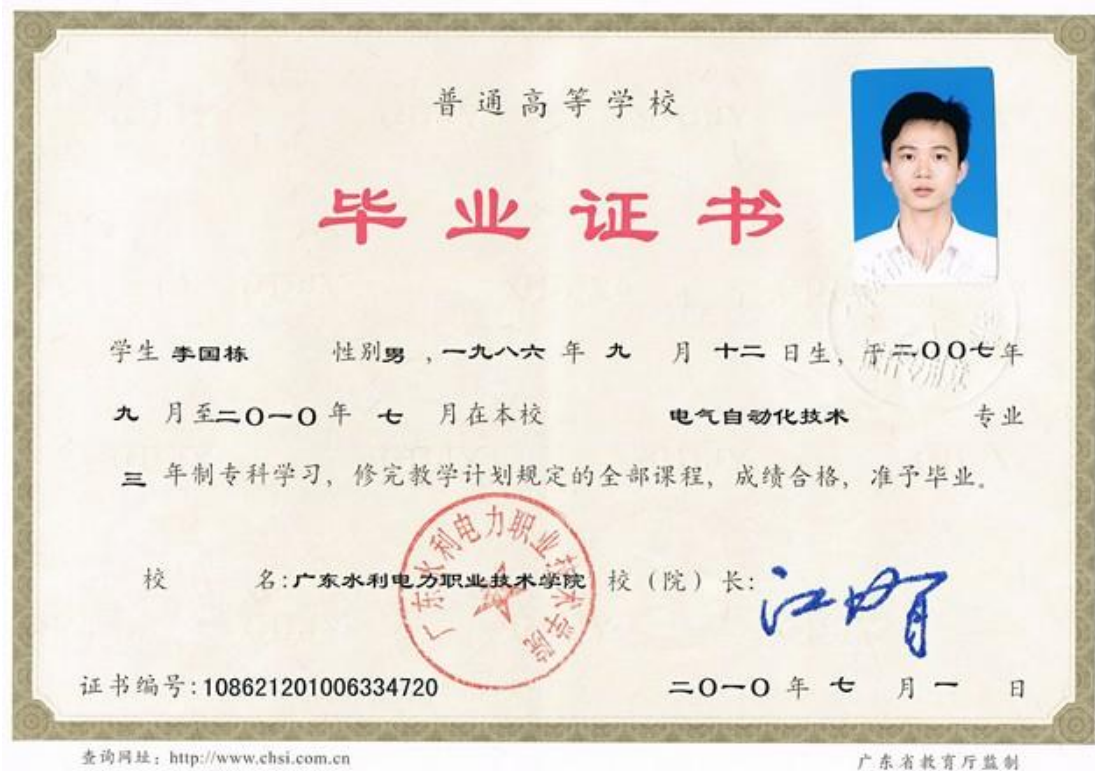 普通高等学校
毕业证书
学生 李国栋 性别男，一九八六年九月十二日生，于二〇〇七年
九月至二〇一〇年七月在本校 电气自动化技术 专业
三年制专科学习，修完教学计划规定的全部课程，成绩合格，准予毕业。
校 名:广东水利电力职业技术学院 校（院）长:
广东水利电力职业技术学院
证书编号:108621201006334720 二〇一〇年七月一日
查询网址：http://www.chsi.com.cn 广东省教育厅监制